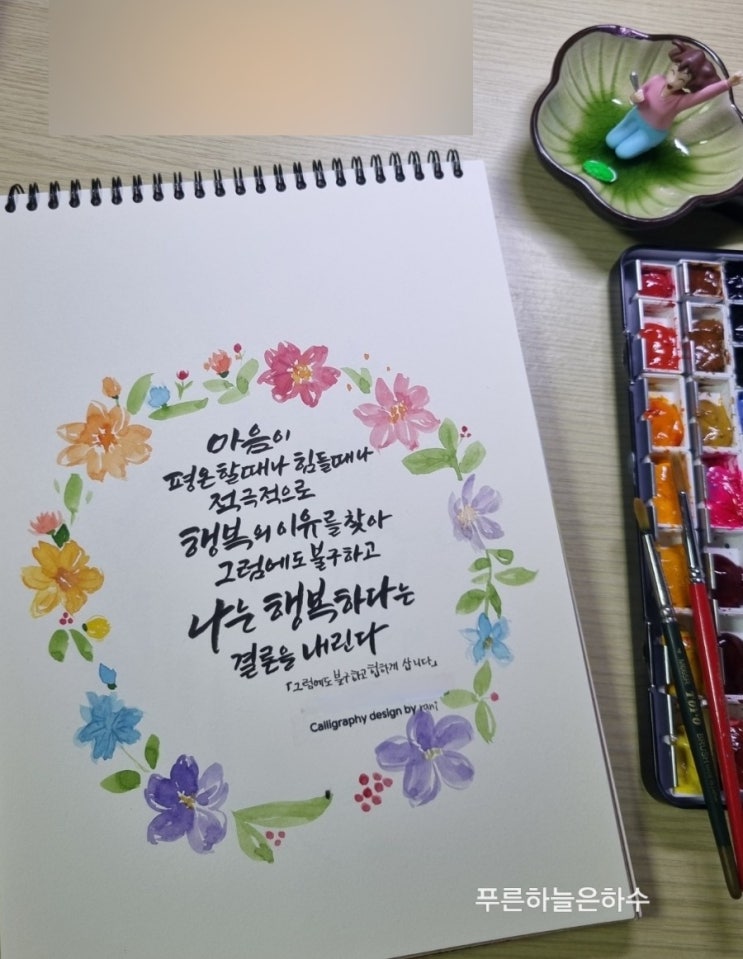 마음이
평온할때나 힘들때나
적극적으로
행복의 이유를 찾아
그럼에도불구하고
나는 행복하다는
결론을 내린다
『그럼에도 불구하고 협하게 삽니다』
Calligraphy design by rani
푸른하늘은하수